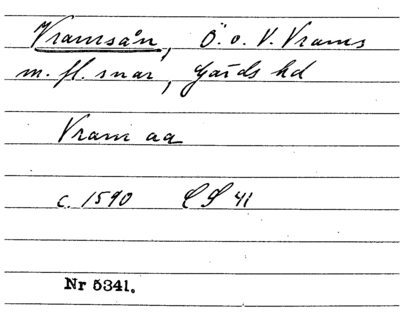 Vramsån, Ö. o. V. Vrams
m. fl. snar, Gärds hd
Vram aa
c. 1590 LS 41
Nr 5341.